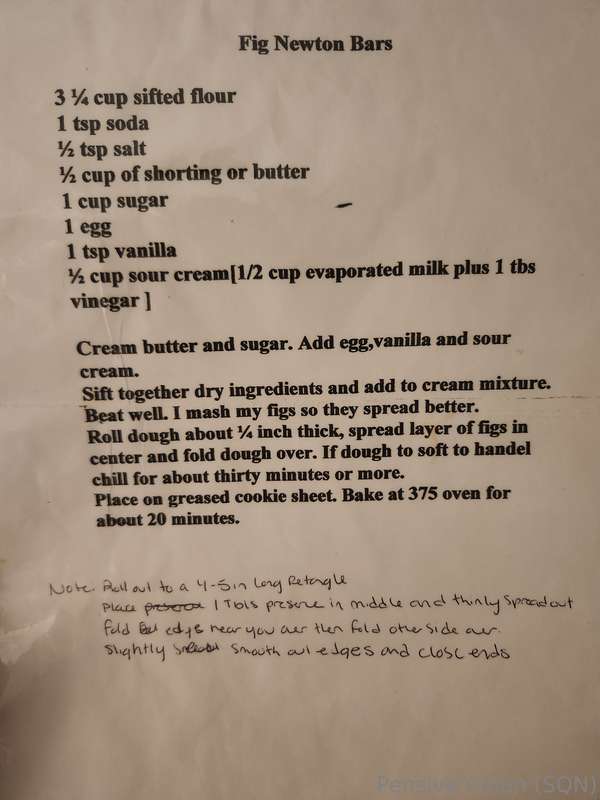 Fig Newton Bars
3 ¼ cup sifted flour
1 tsp soda
½ tsp salt
½ cup of shorting or butter
1 cup sugar
1 egg
1 tsp vanilla
½ cup sour cream[1/2 cup evaporated milk plus 1 tbs
vinegar ]
Cream butter and sugar. Add egg,vanilla and sour
cream.
Sift together dry ingredients and add to cream mixture.
Beat well. I mash my figs so they spread better.
Roll dough about ¼ inch thick, spread layer of figs in
center and fold dough over. If dough to soft to handel
chill for about thirty minutes or more.
Place on greased cookie sheet. Bake at 375 oven for
about 20 minutes.
Note. Roll out to a 4-5in long Retangle
Place 1 Tbls preserve in middle and thinly spread out
fold edge near you over then fold other side over.
Slightly smouth out edges and close ends
(SQN)